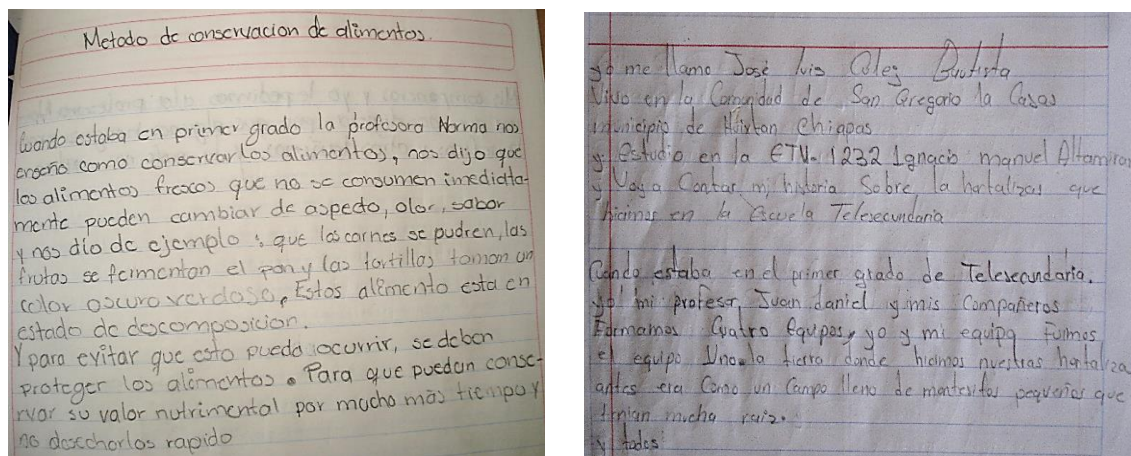 Metodo de conservacion de alimentos.
Cuando estaba en primer grado la profesora Norma nos
enseño como conservar los alimentos, nos dijo que
los alimentos frescos que no se consumen imediata-
mente pueden cambiar de aspecto, olor, sabor
y nos dio de ejemplo: que las carnes se pudren, las
frutas se fermentan el pan y las tortillas toman un
color oscuro verdoso, Estos alimento esta en
estado de descomposicion.
Y para evitar que esto pueda ocurrir, se deben
proteger los alimentos. Para que puedan conse-
rvar su valor nutrimental por mucho más tiempo y
no desecharlos rapido
yo me llamo José luis Bautista
Vivo en la Comunidad de San Gregorio la Casas
municipio de Huixtan Chiapas
y estudio en la ETV. 1232 Ignacio manuel Altamiran
y Voy a Contar mi historia Sobre la hortalizas que
hicimos en la Escuela Telesecundaria
Cuando estaba en el primer grado de Telesecundaria.
yo mi profesor Juan daniel y mis Compañeros
Formamos Cuatro equipos, yo y mi equipo Fuimos
el equipo Uno. la tierra donde hicimos nuestras hortaliza
antes era Como un Campo lleno de montesitos pequeños que
tenían mucha raiz.
y todos